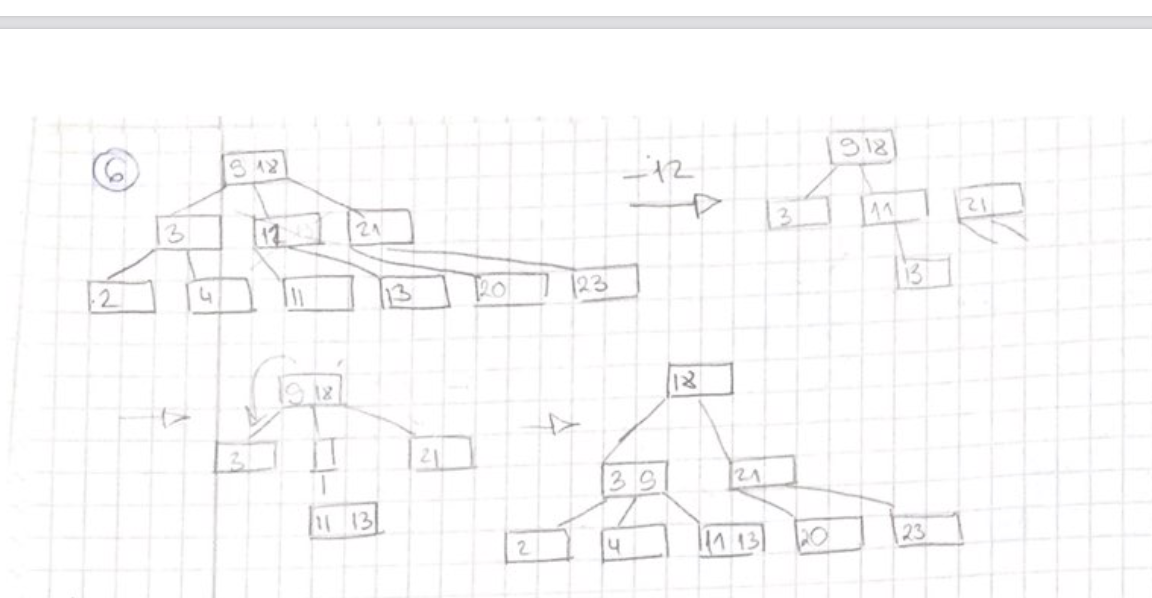 6
9 18
3 12 21
2 4 11 13 20 23
-12
9 18
3 11 21
13
9 18
3 21
11 13
18
3 9 21
2 4 11 13 20 23